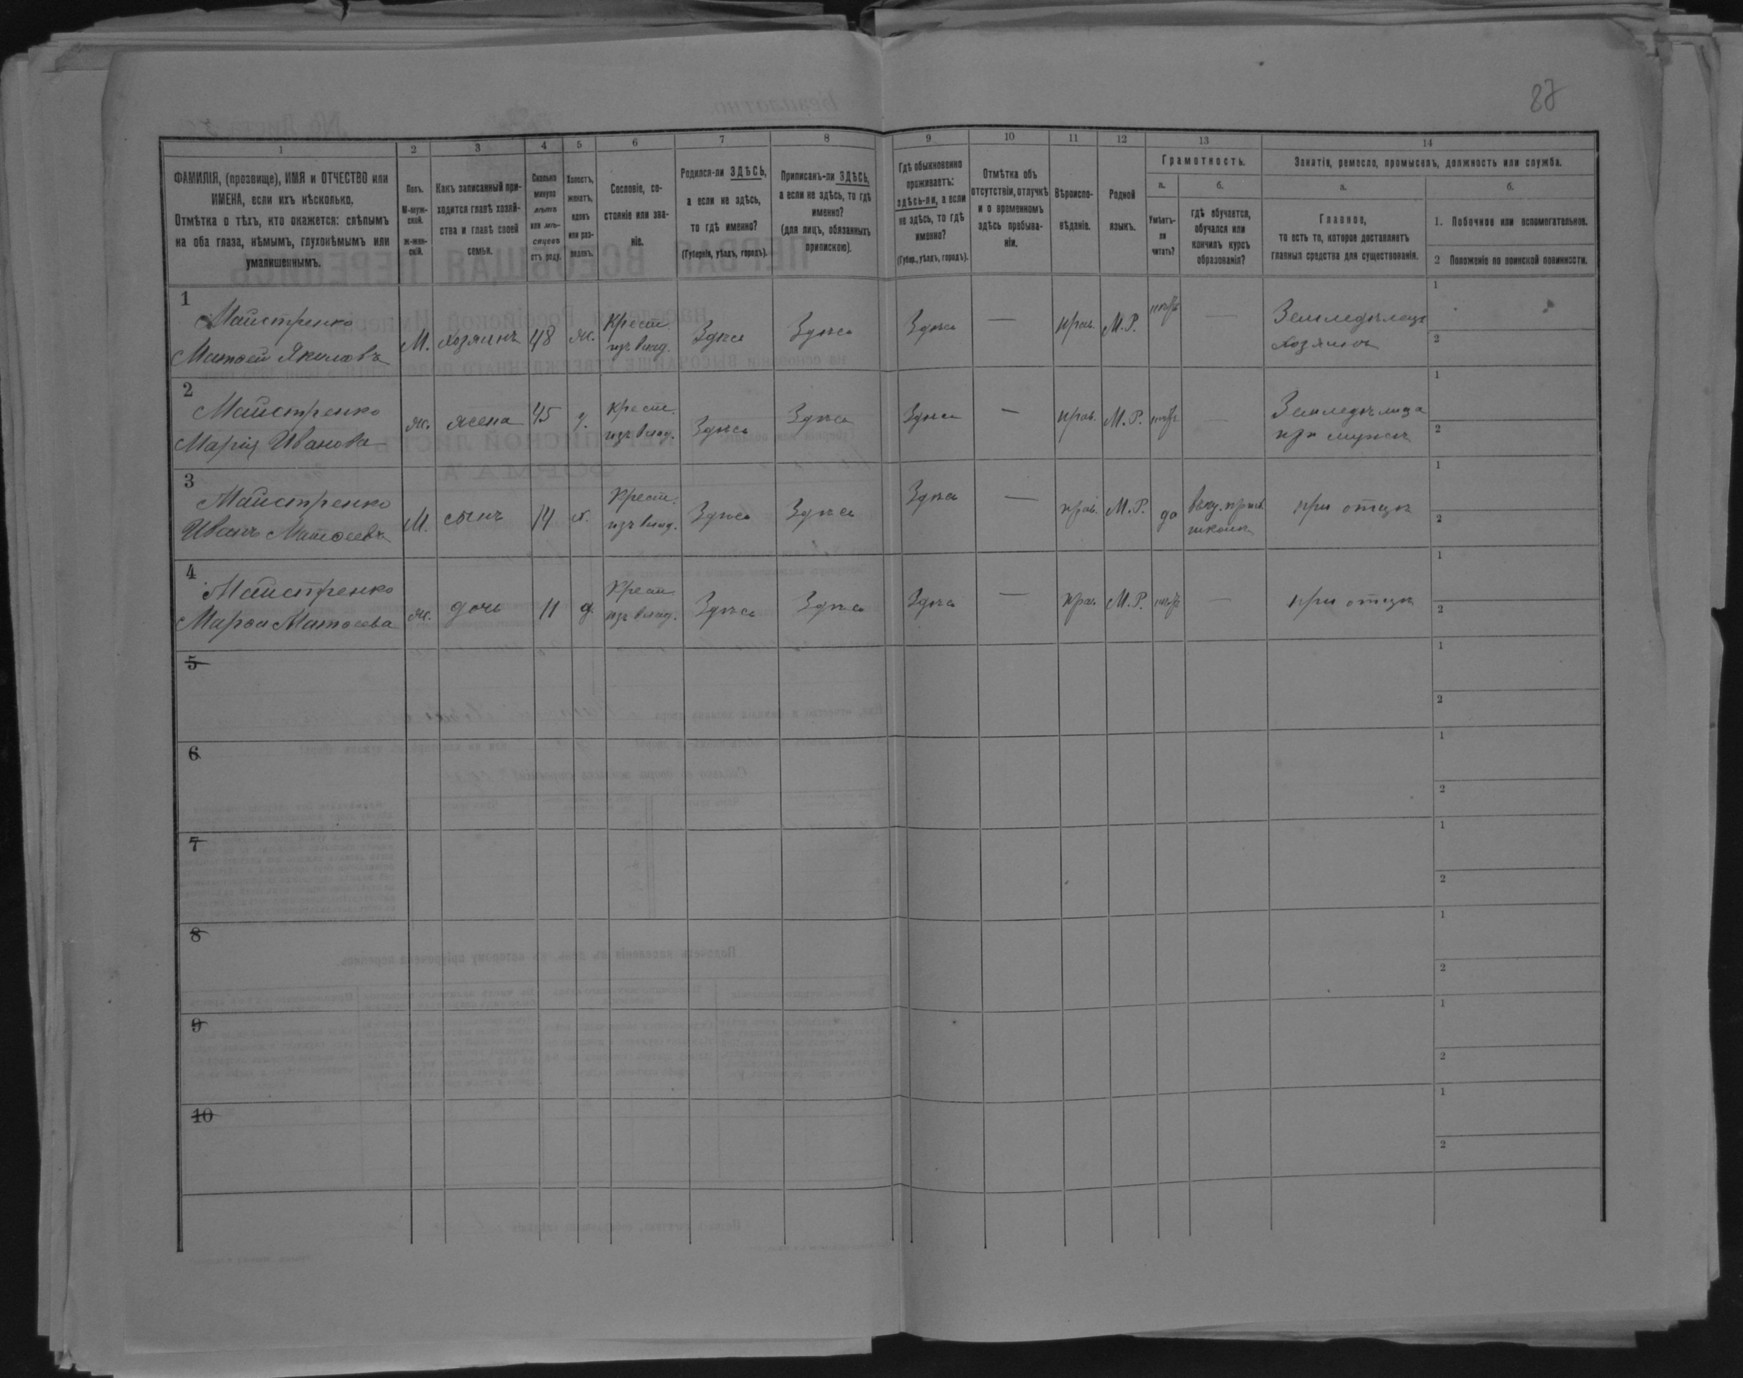 87
1 2 3 4 5 6 7 8 9 10 11 12 13 14
ФАМИЛІЯ, (прозвище), ИМЯ и ОТЧЕСТВО или
ИМЕНА, если ихъ нѣсколько.
Отмѣтка о тѣхъ, кто окажется: слѣпымъ
на оба глаза, нѣмымъ, глухонѣмымъ или
умалишеннымъ.
Полъ.
М-муж-
ской.
ж-жен-
скій.
Какъ записанный при-
ходится главѣ хозяй-
ства и главѣ своей
семьи.
Сколько
минуло
лѣтъ
или мѣ-
сяцевъ
отъ роду.
Холостъ,
женатъ,
вдовъ
или раз-
веденъ.
Сословіе, со-
стояніе или зва-
ніе.
Родился-ли ЗДѢСЬ,
а если не здѣсь,
то гдѣ именно?
(Губернія, уѣздъ, городъ).
Приписанъ-ли ЗДѢСЬ,
а если не здѣсь, то гдѣ
именно?
(для лицъ, обязанныхъ
припискою).
Гдѣ обыкновенно
проживаетъ:
здѣсь-ли, а если
не здѣсь, то гдѣ
именно?
(Губер., уѣздъ, городъ).
Отмѣтка объ
отсутствіи, отлучкѣ
и о временномъ
здѣсь пребыва-
ніи.
Вѣроиспо-
вѣданіе.
Родной
языкъ.
Грамотность.
а.
Умѣетъ-
ли
читать?
б.
гдѣ обучается,
обучался или
кончилъ курсъ
образованія?
Занятіе, ремесло, промыселъ, должность или служба.
а.
Главное,
то есть то, которое доставляетъ
главныя средства для существованія.
б.
1. Побочное или вспомогательное.
2 Положеніе по воинской повинности.
1
Майстренко
Матвей Яковлевъ
М. хозяинъ 48 ж. Крест. Здѣсь Здѣсь Здѣсь — прав. М.Р. —
изъ влад.
Земледѣлецъ
хозяинъ
1
2
2
Майстренко
Марія Иванова
ж. жена 45 з. крест. Здѣсь Здѣсь Здѣсь — прав. М.Р. —
изъ влад.
при мужѣ
1
2
3
Майстренко
Иванъ Матвеевъ
М. сынъ 14 х. Крест. Здѣсь Здѣсь Здѣсь — прав. М.Р. да
изъ влад.
школѣ
при отцѣ
1
2
4
Майстренко
Марфа Матвеева
ж. дочь 11 д. Крест. Здѣсь Здѣсь Здѣсь — прав. М.Р. —
изъ влад.
при отцѣ
1
2
5
1
2
6
1
2
7
1
2
8
1
2
9
1
2
10
1
2